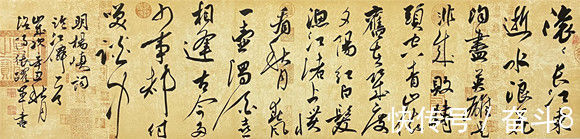 滚滚长江东
逝水浪花
淘尽英雄是
非成败转
头空青山依
旧在几度
夕阳红白发
渔樵江渚上惯
看秋月春风
一壶浊酒喜
相逢古今多
少事都付
笑谈中
明杨慎词
临江仙一首
快传号/奋斗8